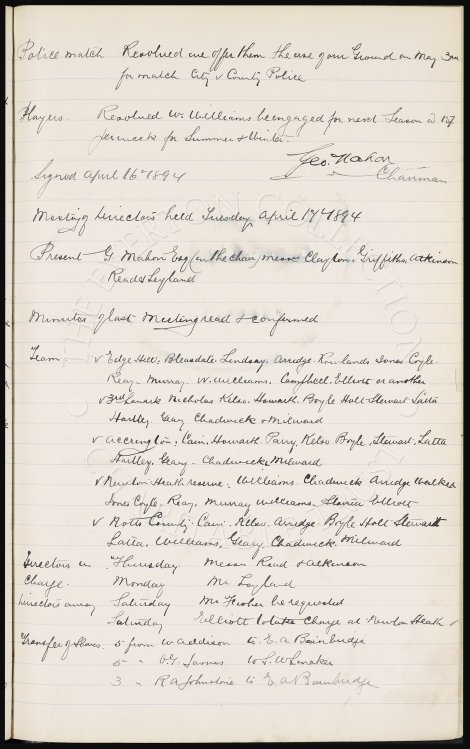 Police match Resolved we offer them the use of our Ground on May 3rd
for match City v County Police
Players. Resolved W. Williams be engaged for next Season @
per week for Summer & Winter.
Geo. Mahon
Signed April 16th 1894 Chairman
Meeting of Directors held Tuesday April 17th 1894
Present G. Mahon Esq (in the chair) messrs Clayton, Griffiths, Atkinson
Read & Leyland
Minutes of last Meeting read & confirmed
Team. v Edge Hill, Bleasdale. Lindsay. Arridge. Rowlands Jones Coyle.
Reay. Murray. W. Williams. Campbell. Elliott or another
v 3rd Lanark Nicholas Kelso. Howarth Boyle Holt Stewart Latta
Hartley Geary Chadwick & Milward
v Accrington. Cain. Howarth Parry. Kelso Boyle. Stewart. Latta
Hartley. Geary. Chadwick, Milward
v Newton Heath reserve. Williams. Chadwick Arridge Walker
Jones Coyle. Reay, Murray Williams. Elliott
v Notts County Cain. Kelso. Arridge. Boyle Holt Stewart
Latta. Williams, Geary. Chadwick. Milward
Directors in Thursday Messrs Read & Atkinson
Charge. Monday Mr Leyland
Directors away Saturday Mr be requested
Saturday Elliott to take Charge at Newton Heath
Transfer of Shares. 5 from W Addison to E. A Bainbridge
5 " James to S. W
3 " R A Johnstone to E A Bainbridge
THE EVERTON COLLECTION